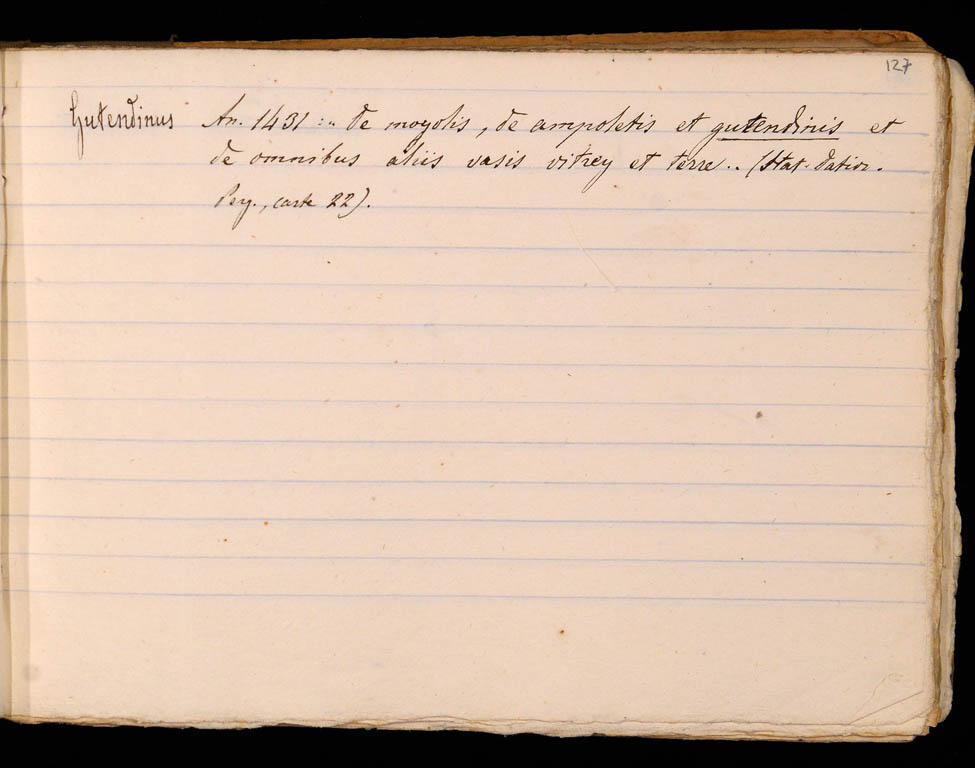 127
Gutendinus An. 1431 : .. de moyolis, de ampoletis et gutendinis et
de omnibus aliis vasis vitrey et terre .. (Stat. datior.
Pey., carte 22).